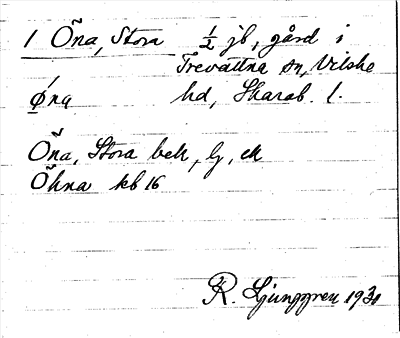 1 Öna, Stora ½ jb, gård i
Trevattna sn, Vilske
Øna hd, Skarab. l.
Öna, Stora bek, lj, ek
Öhna kb 16
R. Ljunggren 1931